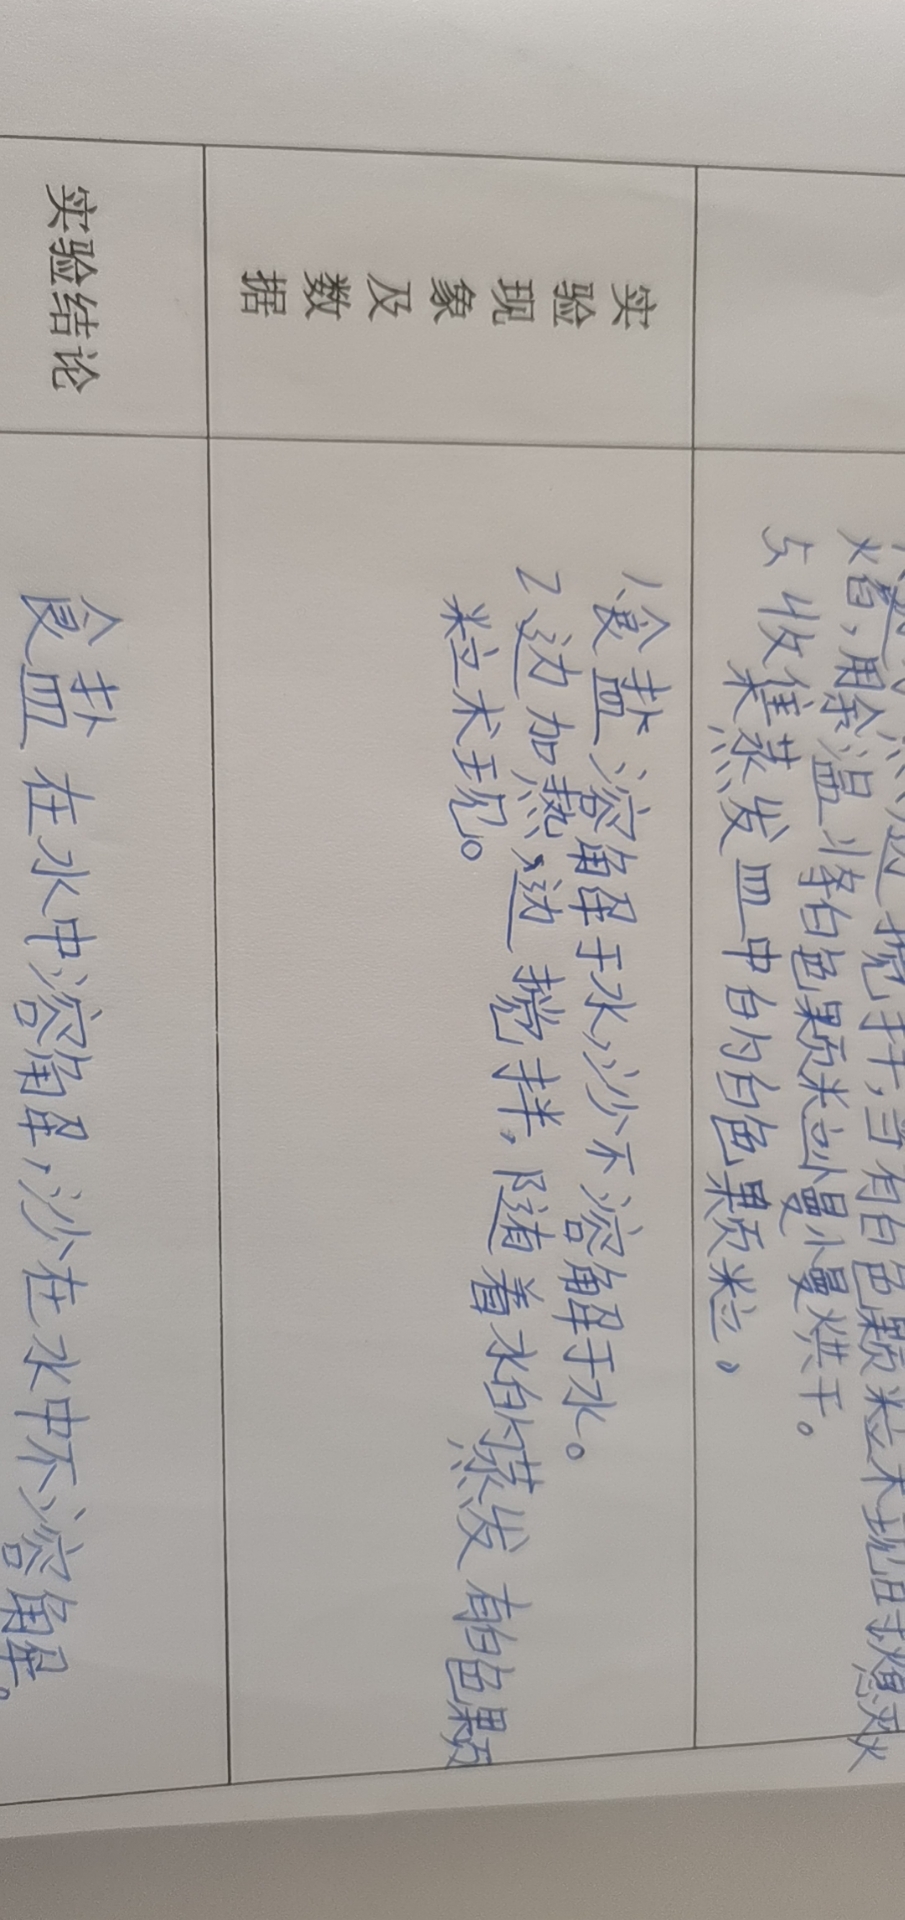 火边加热边搅拌，当有白色颗粒术现时熄灭火
焰，用余温将白色颗粒慢慢烘干。
5 收集蒸发皿中的白色颗粒，
实验现象及数据
1、食盐溶解于水，沙不溶解于水。
2 边加热边搅拌，随着水的蒸发有白色颗
粒术现。
实验结论
食盐在水中溶解，沙在水中不溶解。